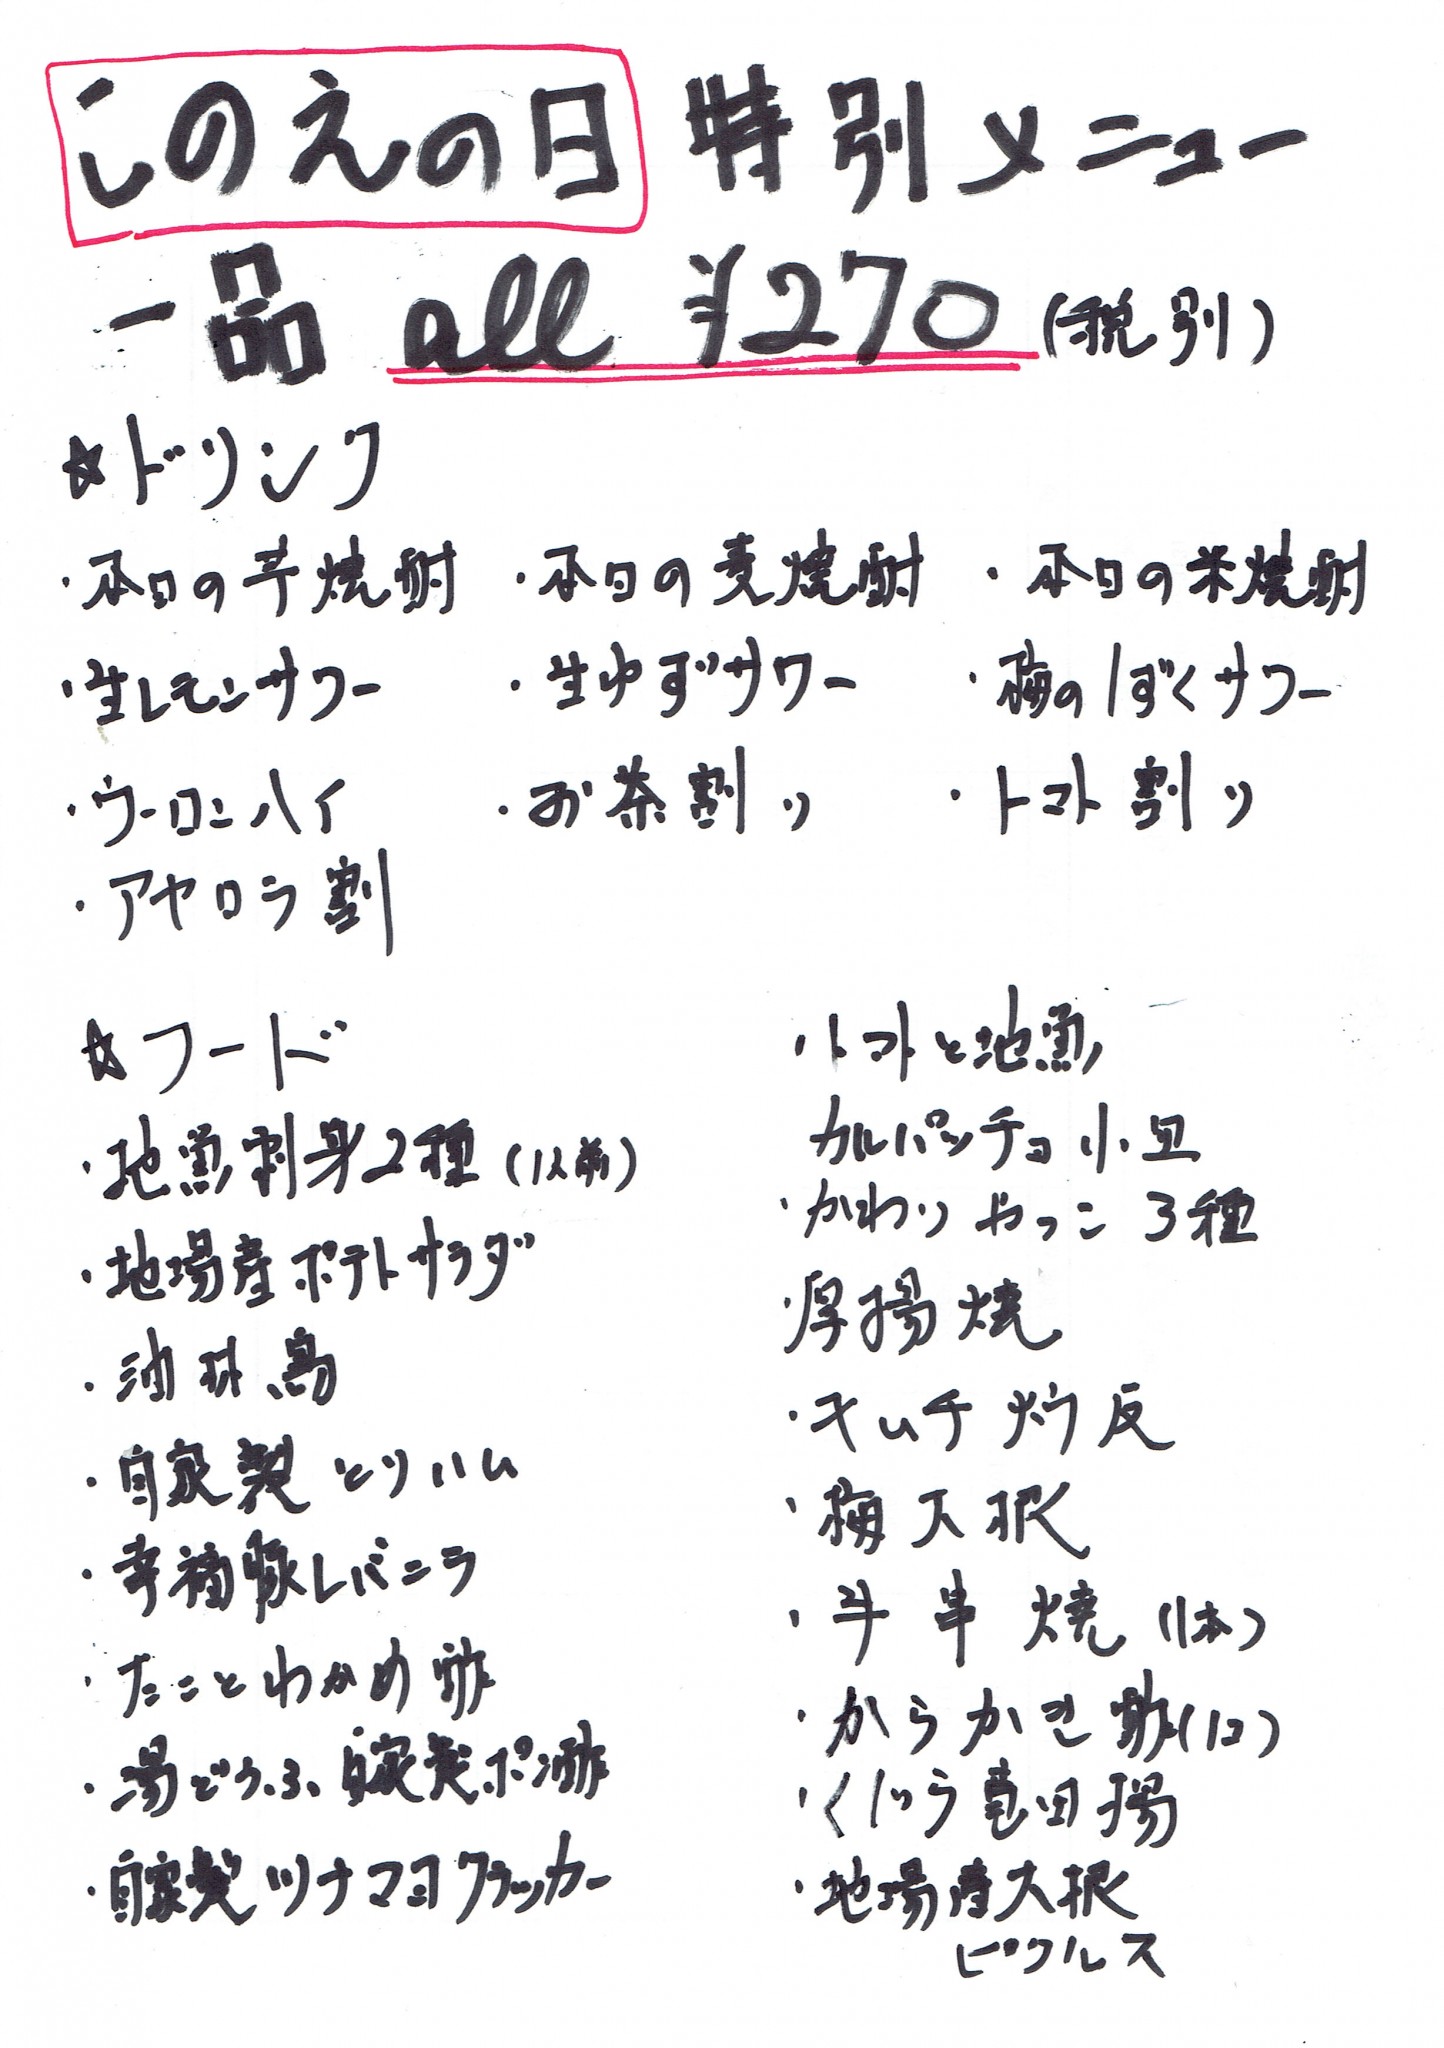 このえの日 特引メニュー
一品 all ¥270(税別)
☆ドリンク
・本日の芋焼酎 ・本日の麦焼酎 ・本日の米焼酎
・生レモンサワー ・生ゆずサワー ・梅のしずくサワー
・ウーロンハイ ・お茶割り ・トマト割り
・アセロラ割
☆フード
・地魚刺身2種(1人前)
・地場産ポテトサラダ
・油淋鳥
・自家製とりハム
・幸福豚レバニラ
・たことわかめ酢
・湯どうふ自家製ポン酢
・自家製ツナマヨクラッカー
・トマトと地魚
カルパッチョ小皿
・かわりやっこ3種
・厚揚焼
・キムチ炒飯
・梅大根
・牛串焼(1本)
・からかき酢(1コ)
・くじら竜田揚
・地場産大根
ピクルス